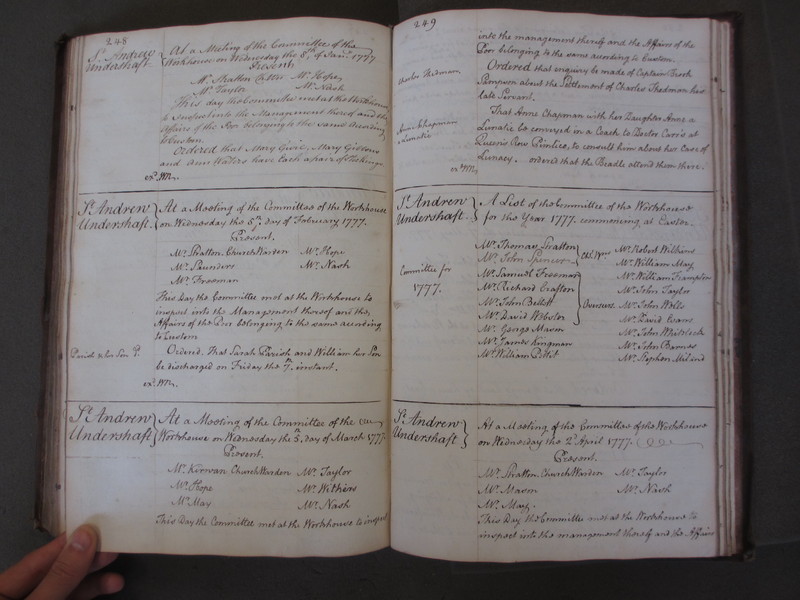 248
St. Andrew
Undershaft
At a Meeting of the Committee of the
Workhouse on Wednesday the 8th of Jany. 1777
Present,
Mr. Stratton Mr. Hope
Mr. Taylor Mr. Nash
This day the Committee met at the Workhouse
to Inspect into the Management thereof and the
Affairs of the Poor belonging to the same according
to Custom.
Ordered that Mary Mary Gibbons
and Ann Waters have each a pair of Stockings
exd. Wm.
St. Andrew
Undershaft.
At a Meeting of the Committee of the Workhouse
on Wednesday the 5th. day of February 1777.
Present.
Mr. Stratton. Church Warden Mr. Hope
Mr. Saunders Mr. Nash
Mr. Freeman
This Day the Committee met at the Workhouse to
inspect into the Management thereof and the,
Affairs of the Poor belonging to the same according
to Custom
Parish & her Son
Ordered. That Sarah Parish and William her Son
be discharged on Friday the 7th. instant.
exd. Wm.
St. Andrew
Undershaft
At a Meeting of the Committee of the
Workhouse on Wednesday the 5th. day of March 1777.
Present.
Mr. Kirwan Church Warden Mr. Taylor
Mr. Hope Mr. Withers
Mr. May Mr. Nash
This Day the Committee met at the Workhouse to inspect
249
into the management thereof and the Affairs of the
Poor belonging to the same according to Custom.
Charles Thedmam
Ordered that enquiry be made of Captain Brook
Sampson about the Settlement of Charles Thedman his
late Servant.
Anne Chapman
a Lunatic
That Anne Chapman with her Daughter Anne a
Lunatic be conveyed in a Coach to Doctor at
Queens Row Pimlico, to consult him about her Case of
Lunacy. ordered that the Beadle attend them there.
exd. Wm.
St. Andrew
Undershaft.
A List of the Committee of the Workhouse
for the Year 1777. commencing at Easter.
Committee for
1777.
Mr. Thomas Stratton
Mr. John Spencer
Ch: Wns
Mr. Samuel Freeman
Mr. Richard Crafton
Mr. John Bellett
Mr. David Webster
Overseers.
Mr. George Maven
Mr. James Kingman
Mr. William Pettit
Mr. Robert Withens
Mr. William May
Mr. William Frampton
Mr. John Taylor
Mr. John Wells
Mr. David Evans
Mr. John Whitelock
Mr. John Barnes
Mr. Stephen
St. Andrew
Undershaft
At a Meeting of the Committee of the Workhouse
on Wednesday the 2d. April 1777.
Present.
Mr. Stratton. Church Warden Mr. Taylor
Mr. Maven Mr. Nash
Mr. May.
This Day the Committee met at the Workhouse to
inspect into the management thereof and the Affairs